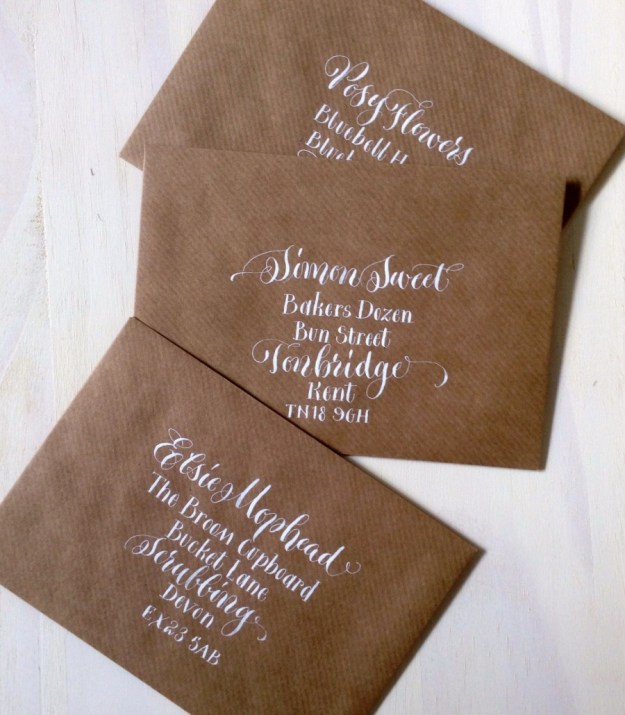 Posy Flowers
Bluebell H
Simon Sweet
Bakers Dozen
Bun Street
Tonbridge
Kent
TN18 9GH
Elsie Mophead
The Broom Cupboard
Bucket Lane
Scrubbing
Devon
EX23 5AB